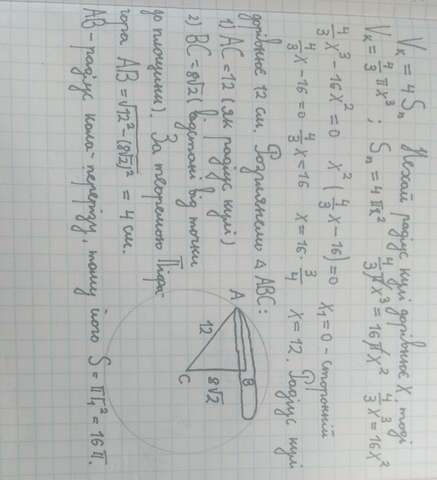 Vк = 4Sп Нехай радіус кулі дорівнює X, тоді
Vк = 4/3 πx³ ; Sп = 4πx² 4/3 πx³ = 16πx² 4/3 x³ = 16x²
4/3 x³ - 16x² = 0 x² (4/3 x - 16) = 0 x₁ = 0 - сторонній
4/3 x - 16 = 0 4/3 x = 16 x = 16 · 3/4 x = 12. Радіус кулі
дорівнює 12 см. Розглянемо △ ABC:
1) AC = 12 (як радіус кулі)
2) BC = 8√2 (відстані від точки
до площини). За теоремою Піфа-
гора AB = √12² - (8√2)² = 4 см.
AB - радіус кола - перерізу, тому його S = πr₁² = 16π.
A
B
C
12
8√2